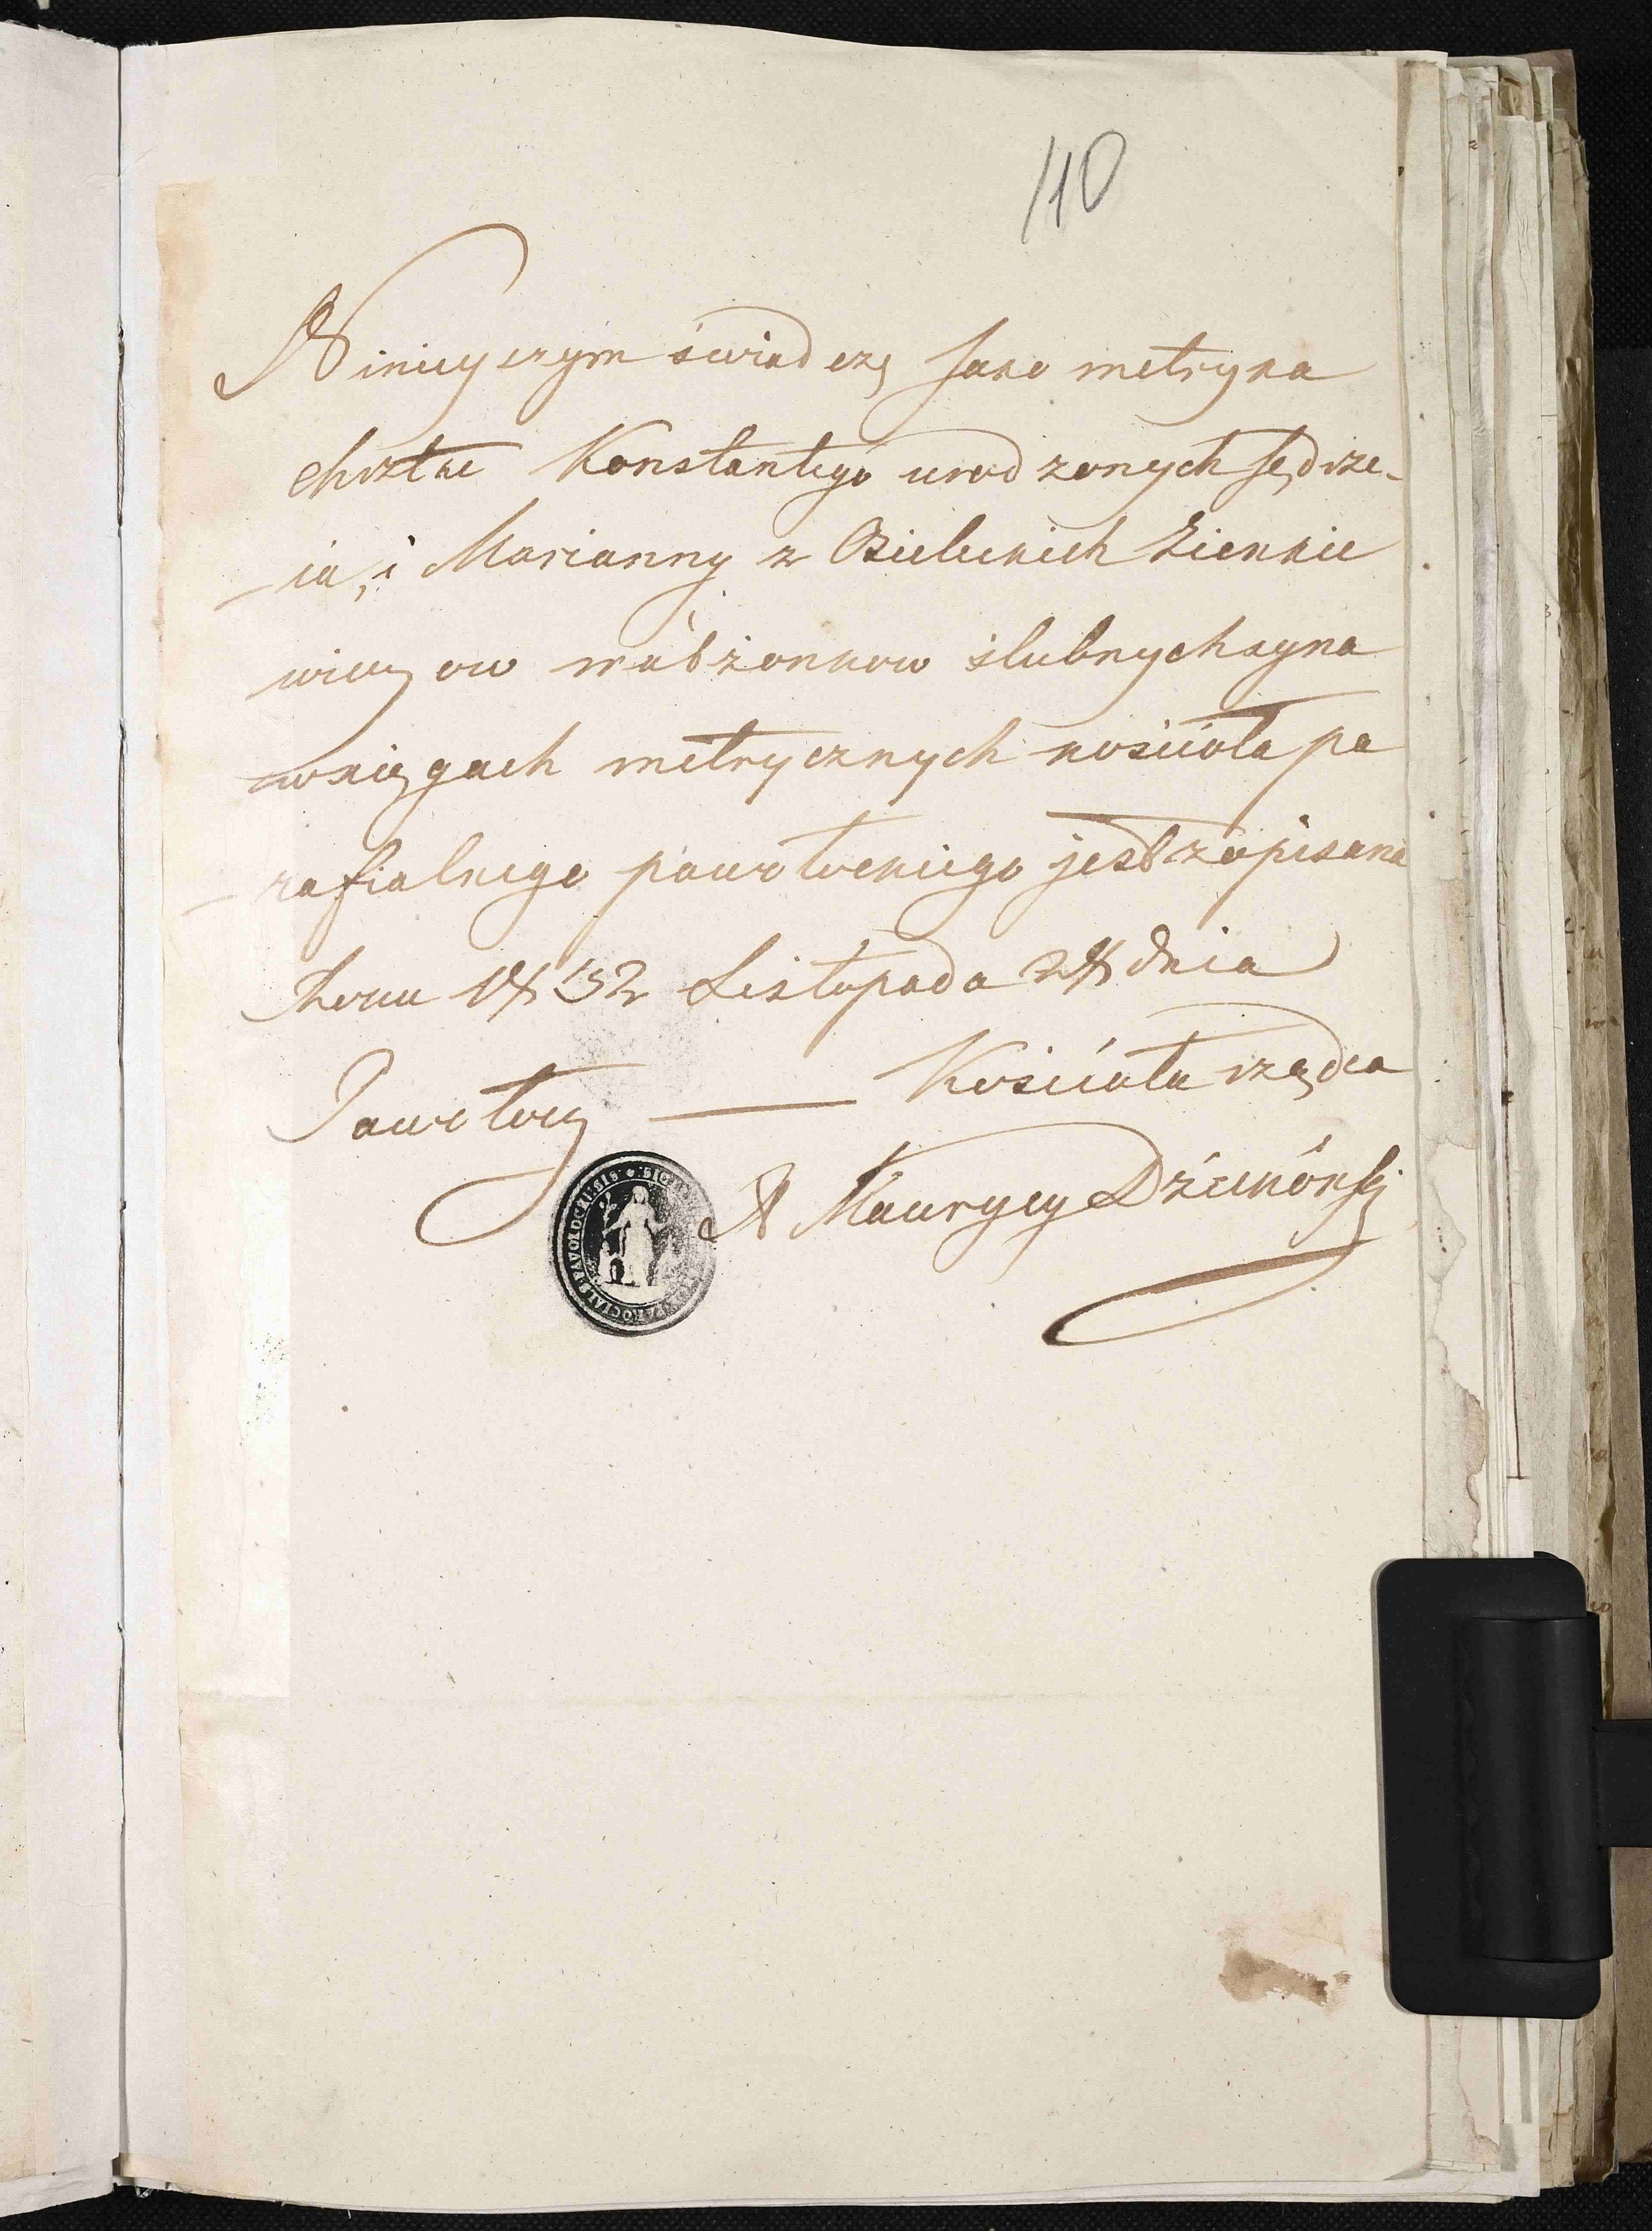 110
Ninieyszym świadczę jako metryka
chrztu Konstantego urodzonych Jędrze-
ia, i Marianny z Bieleckich Zienkie
wiczow małżonkow ślubnych syna
w księgach metrycznych kościoła pa
rafialnego pawołockiego jest zapisana
Roku 1852 Listopada 28 dnia
Pawołocz — Kościoła rządca
X Maurycy
PAROCIAL PAVOLOCENSIS